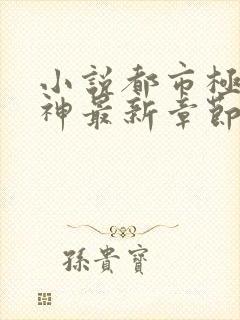 小説都市極
神最新章節
孫貴寶